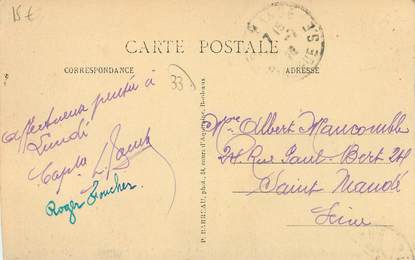 15€
CARTE POSTALE
CORRESPONDANCE
ADRESSE
33
Affectueuse pensée à
Lundi
Roger Foucher
P. BARREAU, phot. 24, cours d'Aquitaine, Bordeaux
Mme Albert Mancomble
24 Rue Paul-Bert 24
Saint Mandé
Seine